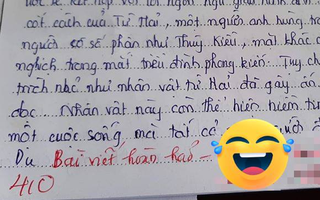 cốt cách của Từ Hải, một người anh hùng tr
người có số phận như Thúy Kiều, mặt khác c
nghịch trong mắt triều đình phong kiến. Tuy ch
trích nhỏ như nhân vật từ Hải đã gây ấn
đọc... Nhân vật này còn thể hiện niềm t
một cuộc sống mà tất cả
Du Bài viết hoàn hảo
410